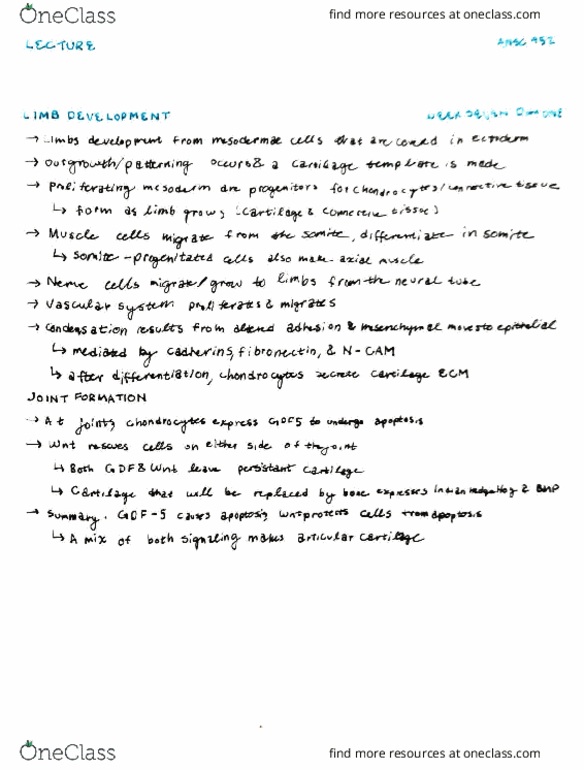 OneClass
find more resources at oneclass.com
LECTURE
ANSC 452
LIMB DEVELOPMENT
WEEK SEVEN DAY ONE
→ Limbs development from mesodermae cells that are covered in ectoderm
→ Outgrowth/patterning occurs & a cartilage template is made
→ Proliferating mesoderm are progenitors for chondrocytes/connective tissue
↳ form as limb grows (cartilage & connective tissue)
→ Muscle cells migrate from the somite, differentiate in somite
↳ somite-progenitated cells also make axial muscle
→ Nerve cells migrate/grow to limbs from the neural tube
→ Vascular system proliferates & migrates
→ Condensation results from altered adhesion & mesenchymal moves to epithelial
↳ mediated by cadherins, fibronectin, & N-CAM
↳ after differentiation, chondrocytes secrete cartilage ECM
JOINT FORMATION
→ At joints, chondrocytes express GDF5 to undergo apoptosis
→ Wnt rescues cells on either side of the joint
↳ Both GDF & Wnt leave persistant cartilage
↳ Cartilage that will be replaced by bone expresses Indian hedgehog & BMP
→ Summary. GDF-5 causes apoptosis, Wnt protects cells from apoptosis
↳ A mix of both signaling makes articular cartilage
OneClass
find more resources at oneclass.com